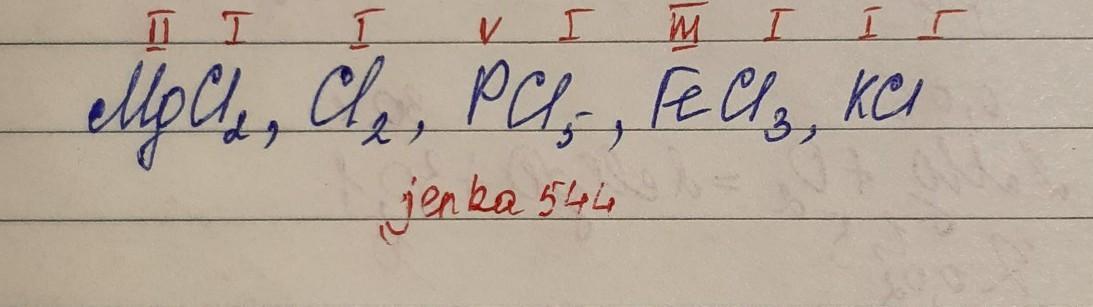 II I I V I III I I I
MgCl₂, Cl₂, PCl₅, FeCl₃, KCl
jenka 544